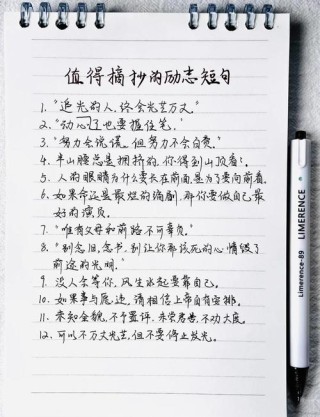 值得摘抄的励志短句
1. "追光的人,终会光芒万丈。"
2. "动心了也要握住笔。"
3. "努力会说谎,但努力不会白费。"
4. 半山腰总是拥挤的,你得到山顶看!。
5. 人的眼睛为什么要长在前面,是为了要向前看。
6. 如果命运是最烂的编剧,那你要做自己最
好的演员。
7. "唯有父母和前路不可辜负。"
8. "别念旧,念书,别让你那该死的心情毁了
前途的光明。"
9. 没人会等你,风生水起要靠自己。
10. 如果事与愿违,请相信上帝自有安排。
11. 未知全貌,不予置评,未尝君苦,不劝大度。
12. 可以不万丈光芒,但不要停止发光。
LIMERENCE
Limerence-89